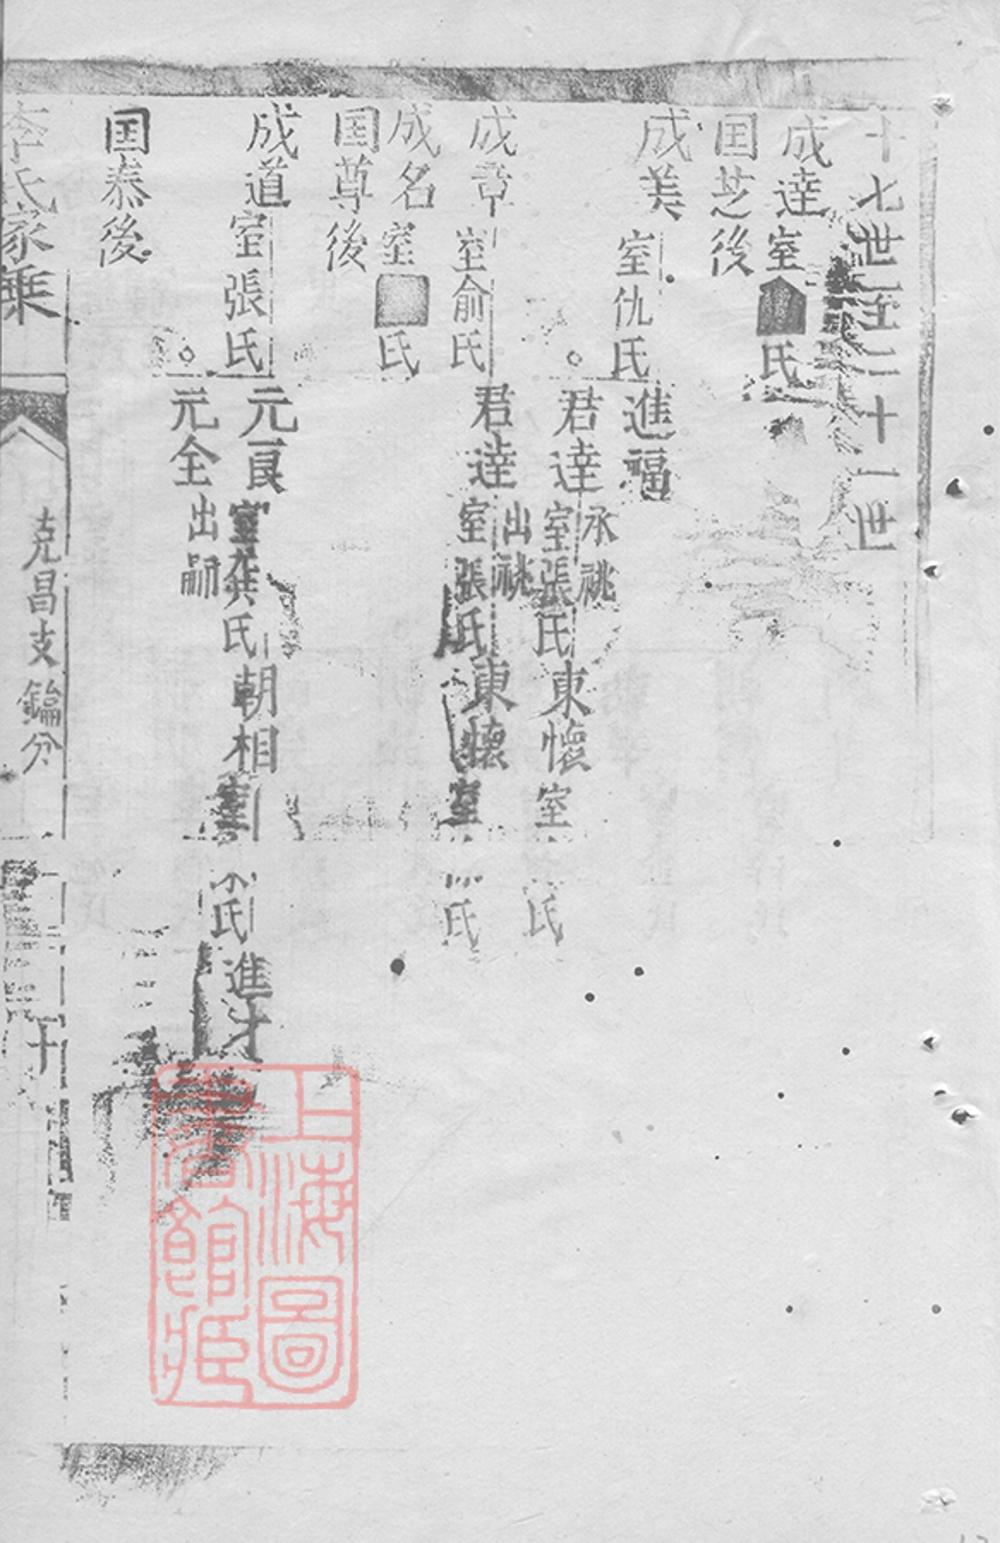 十七世至二十一世
成達室 氏
国芝後
成美室仇氏 進福
君達承祧室張氏 東懷室 氏
成章室俞氏 君達出祧室張氏 東懷室 氏
成名室 氏
国尊後
成道室張氏 元良室 氏 朝相室 氏 進才
元全出嗣
国泰後
李氏家乗
克昌支 分
十
上海圖
書館藏